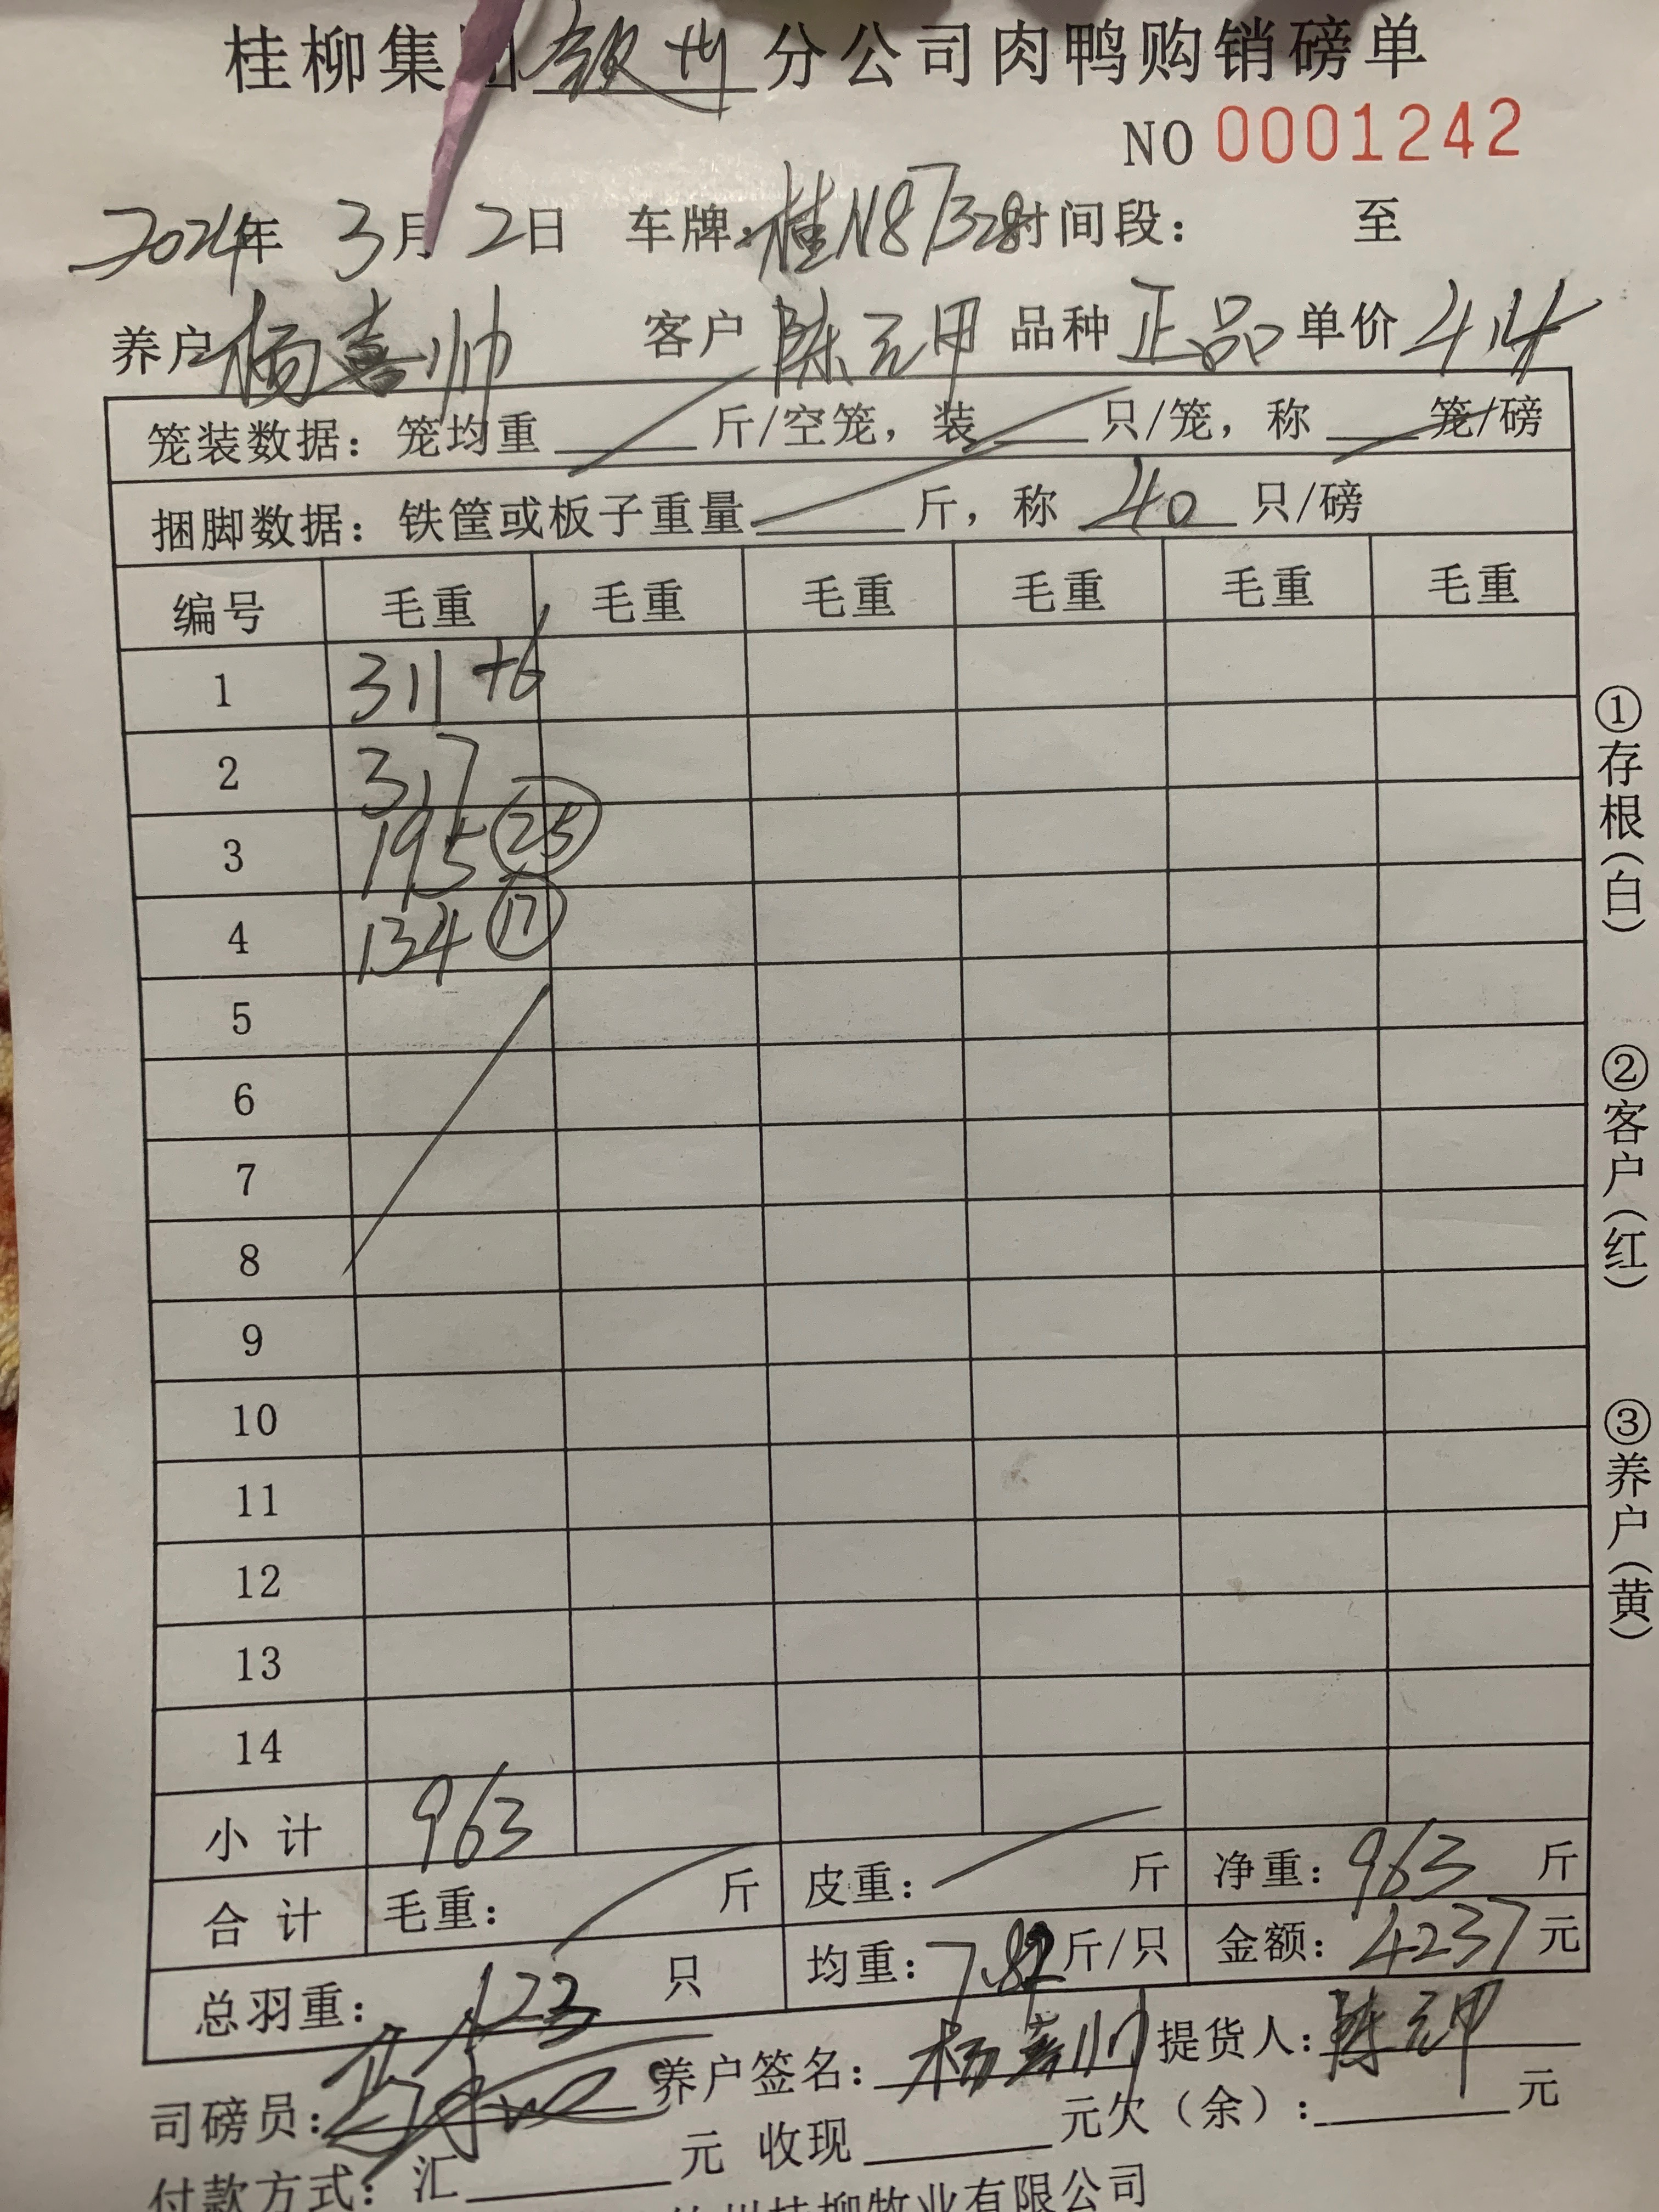 桂柳集团 钦州 分公司肉鸭购销磅单
NO 0001242
2024年 3月 2日 车牌: 桂N87328 时间段: 至
养户 杨喜帅 客户 陈元甲 品种 正品 单价 4.4
笼装数据: 笼均重 斤/空笼, 装 只/笼, 称 笼/磅
捆脚数据: 铁筐或板子重量 斤, 称 40 只/磅
编号 毛重 毛重 毛重 毛重 毛重 毛重
1 311 +6
2 317
3 195 25
4 134 17
5
6
7
8
9
10
11
12
13
14
小计 963
合计 毛重: 斤 皮重: 斤 净重: 963 斤
总羽重: 123 只 均重: 7.82 斤/只 金额: 4237 元
司磅员: 养户签名: 杨喜帅 提货人: 陈元甲
付款方式: 汇 元 收现 元欠(余): 元
州桂柳牧业有限公司
①存根(白)
②客户(红)
③养户(黄)